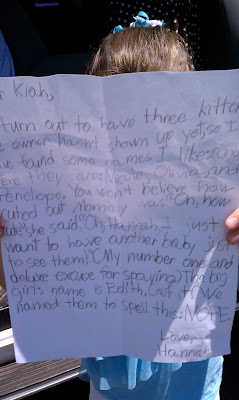 r Kiah,
turn out to have three kitten
e owner hasn't shown up yet, so I
ve found some names I like: and
ere they are: Nicole, Olivia, and
Penelope. You won't believe how
cuted out Mommy was "Oh, how
cute" she said, "Oh, Hannah, I just
want to have another baby just
to see them!" (My number one and
deluxe excuse for spaying) The big
girl's name is Edith, Got it? We
named them to spell this: NOPE
Love,
Hannah